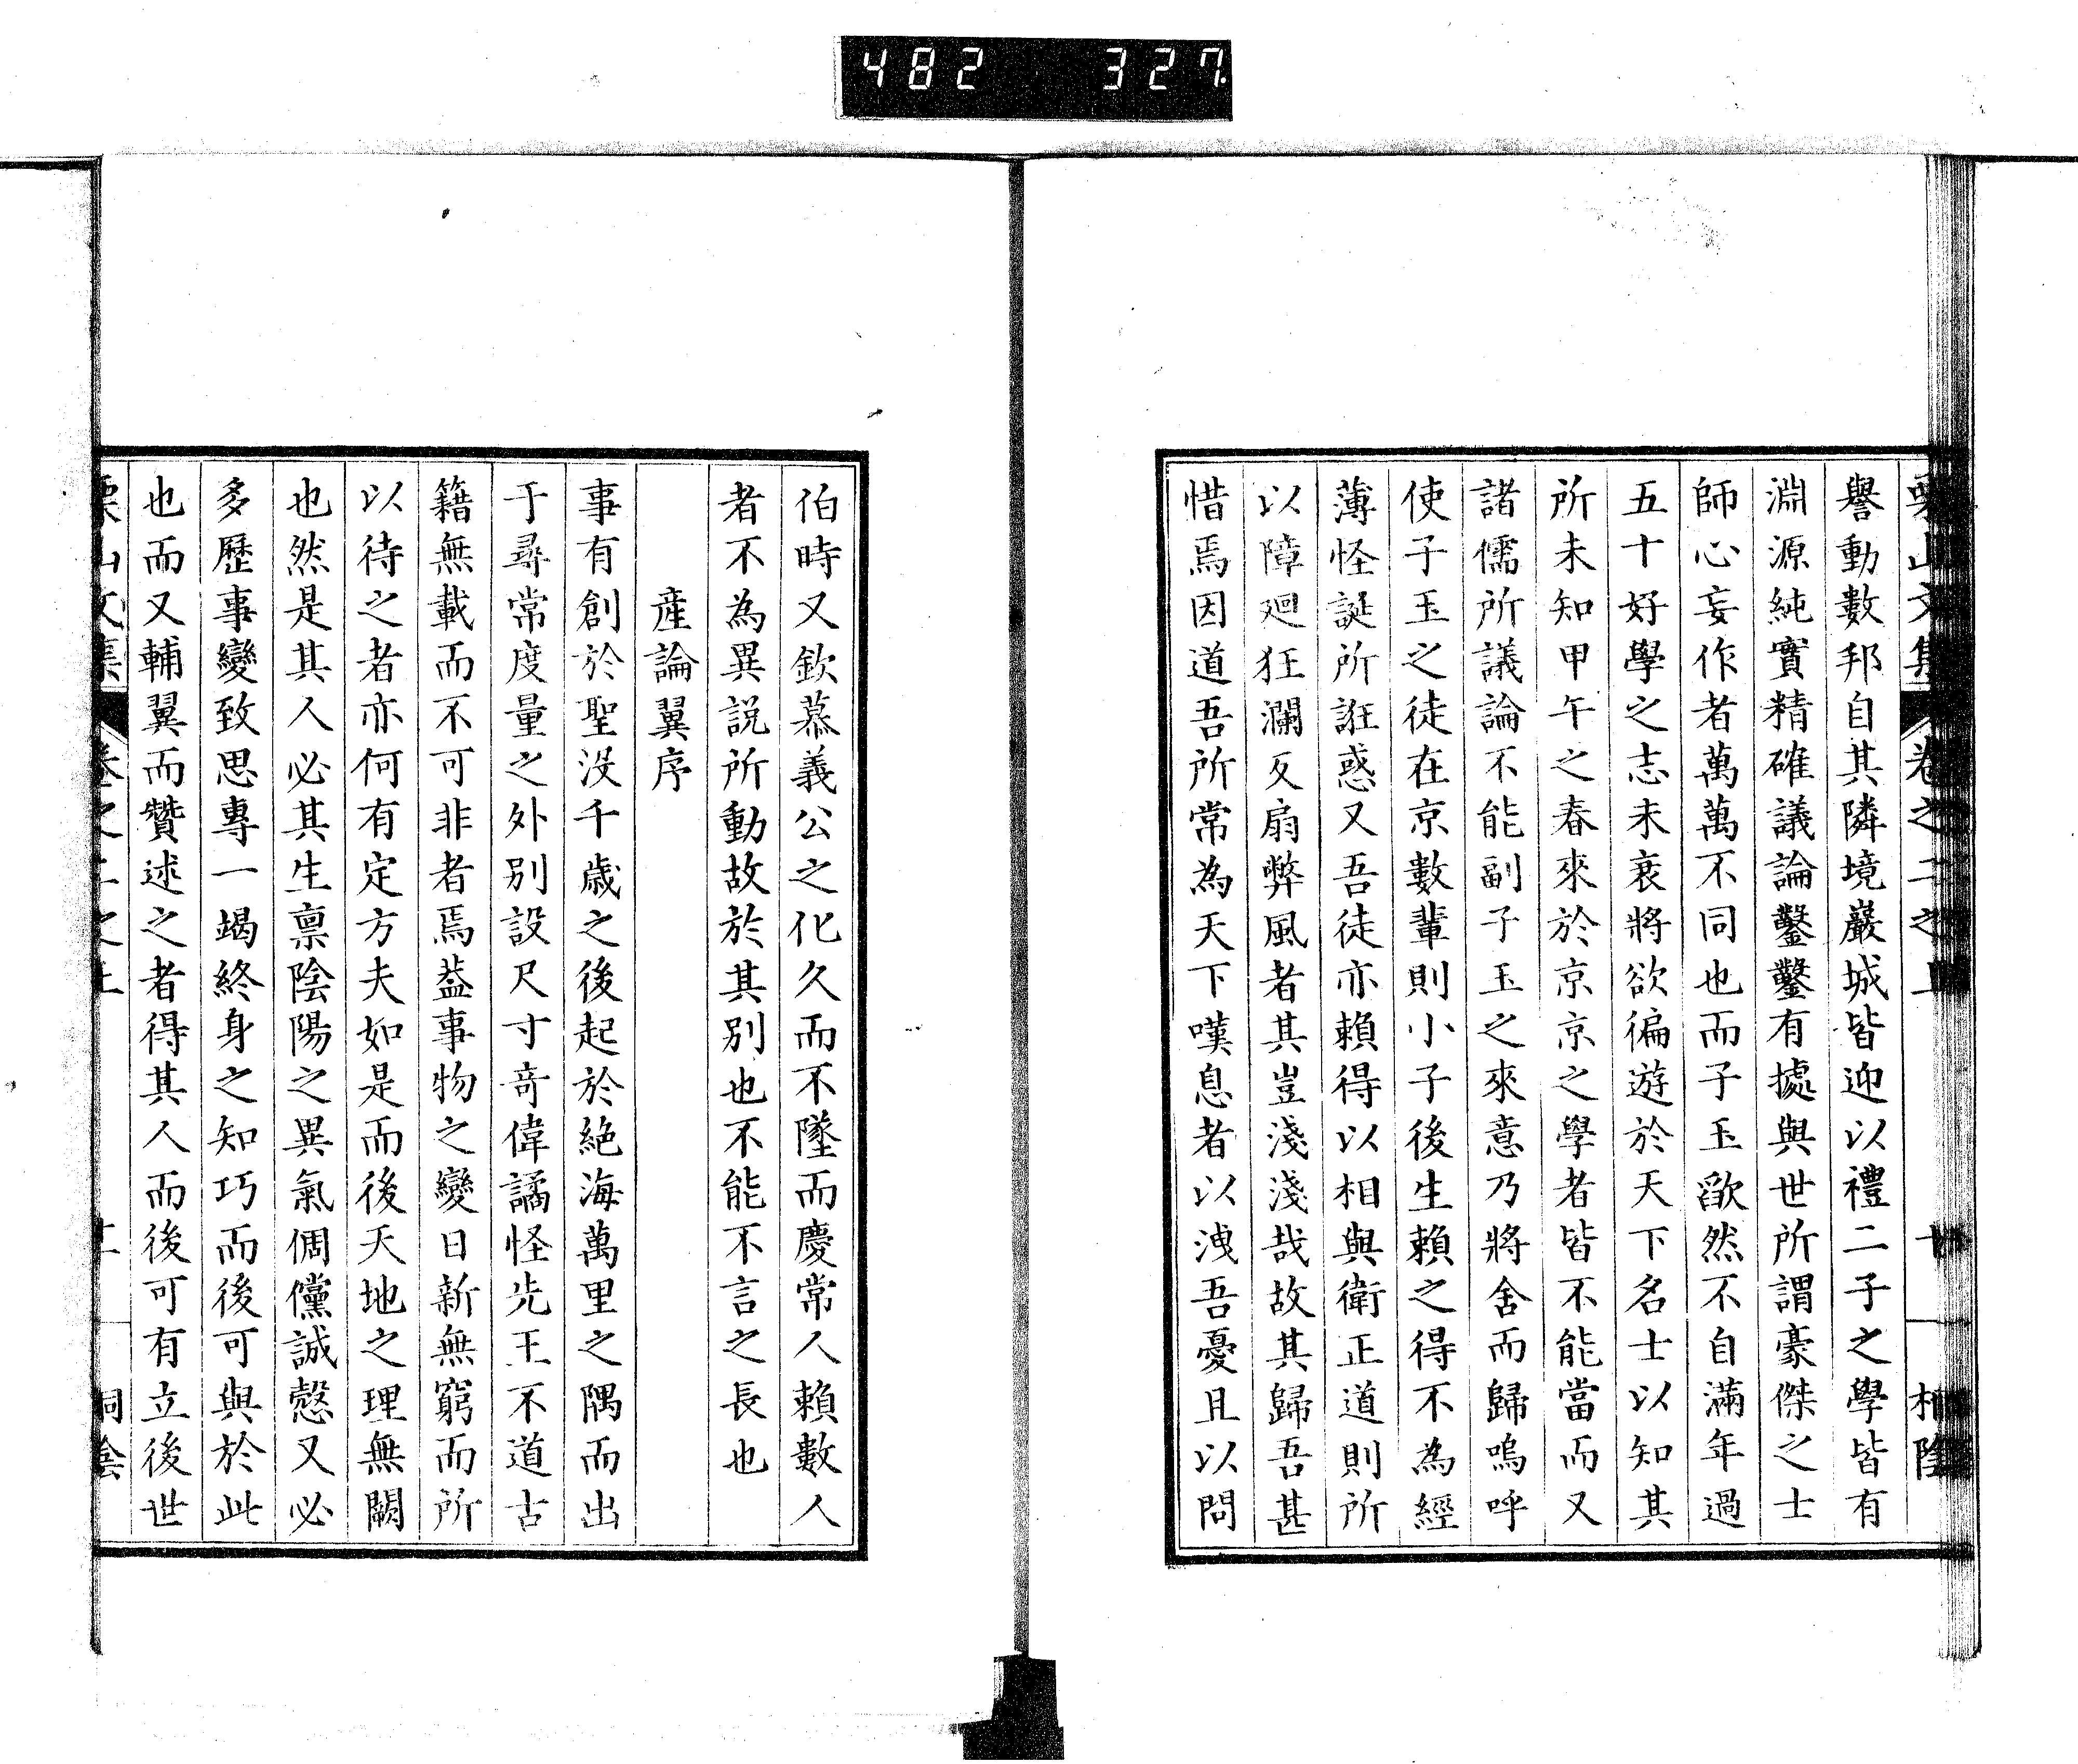 482 327
栗山文集 卷之二之上 十 桐陰
譽動數邦自其隣境巖城皆迎以禮二子之學皆有
淵源純實精確議論鑿鑿有據與世所謂豪傑之士
師心妄作者萬萬不同也而子玉欿然不自滿年過
五十好學之志未衰將欲徧遊於天下名士以知其
所未知甲午之春來於京京之學者皆不能當而又
諸儒所議論不能副子玉之來意乃將舍而歸嗚呼
使子玉之徒在京數輩則小子後生賴之得不為經
薄怪誕所誑惑又吾徒亦賴得以相與衛正道則所
以障廻狂瀾反扇弊風者其豈淺淺哉故其歸吾甚
惜焉因道吾所常為天下嘆息者以洩吾憂且以問
伯時又欽慕義公之化久而不墜而慶常人賴數人
者不為異説所動故於其別也不能不言之長也
產論翼序
事有創於聖沒千歲之後起於絶海萬里之隅而出
于尋常度量之外別設尺寸竒偉譎怪先王不道古
籍無載而不可非者焉葢事物之變日新無窮而所
以待之者亦何有定方夫如是而後天地之理無闕
也然是其人必其生禀陰陽之異氣倜儻誠慤又必
多歷事變致思專一竭終身之知巧而後可與於此
也而又輔翼而贊述之者得其人而後可有立後世
栗山文集 卷之二之上 十一 桐陰